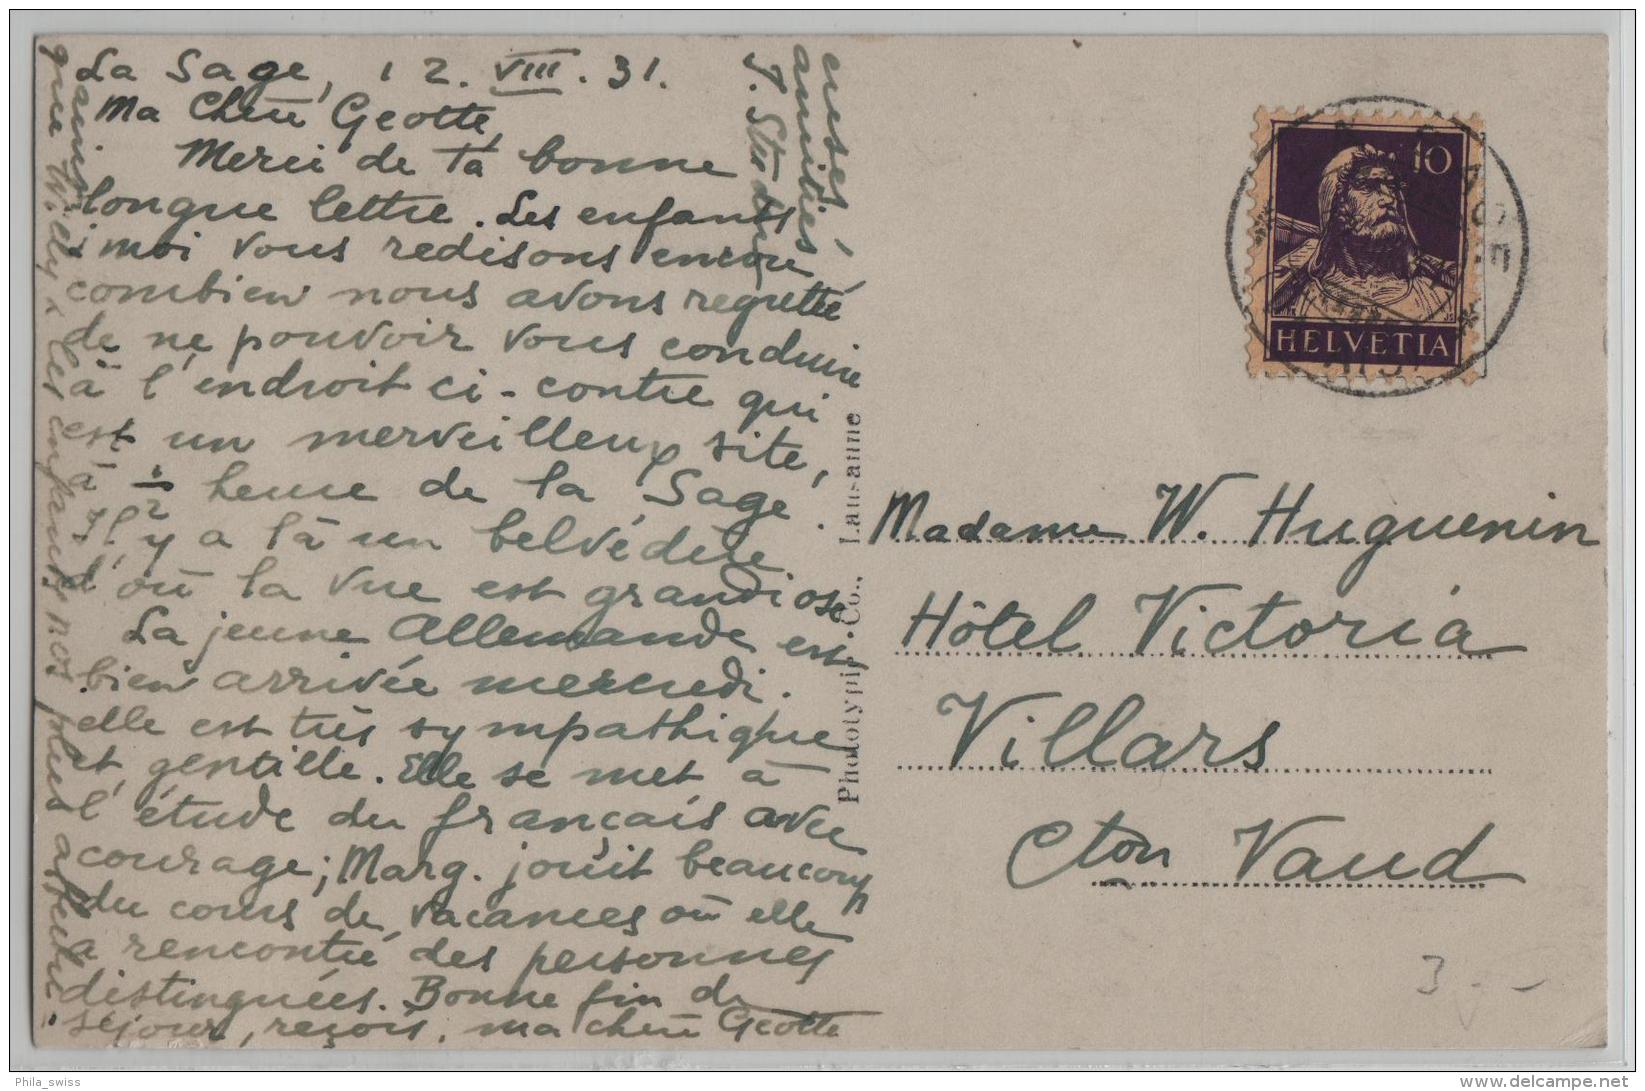 La Sage, 12.VIII.31.
Ma Chère Geotte,
Merci de ta bonne
longue lettre. Les enfants
& moi vous redisons encore
combien nous avons regretté
de ne pouvoir vous conduire
à l'endroit ci-contre qui
est un merveilleux site,
à ½ heure de la Sage.
Il y a là un belvédère
d'où la vue est grandiose
La jeune Allemande est
bien arrivée mercredi.
elle est très sympathique
et gentille. Elle se met à
l'étude du français avec
courage; Marg. jouit beaucoup
du cours de vacances où elle
a rencontré des personnes
distinguées. Bonne fin de
séjour, reçois, ma chère Geotte
ainsi
que Willy & les enfants nos plus affectu-
euses
amitiés
Phototypie Co., Lausanne
10
HELVETIA
Madame W. Huguenin
Hôtel Victoria
Villars
Cton Vaud
3.--
Phila_swiss
www.delcampe.net